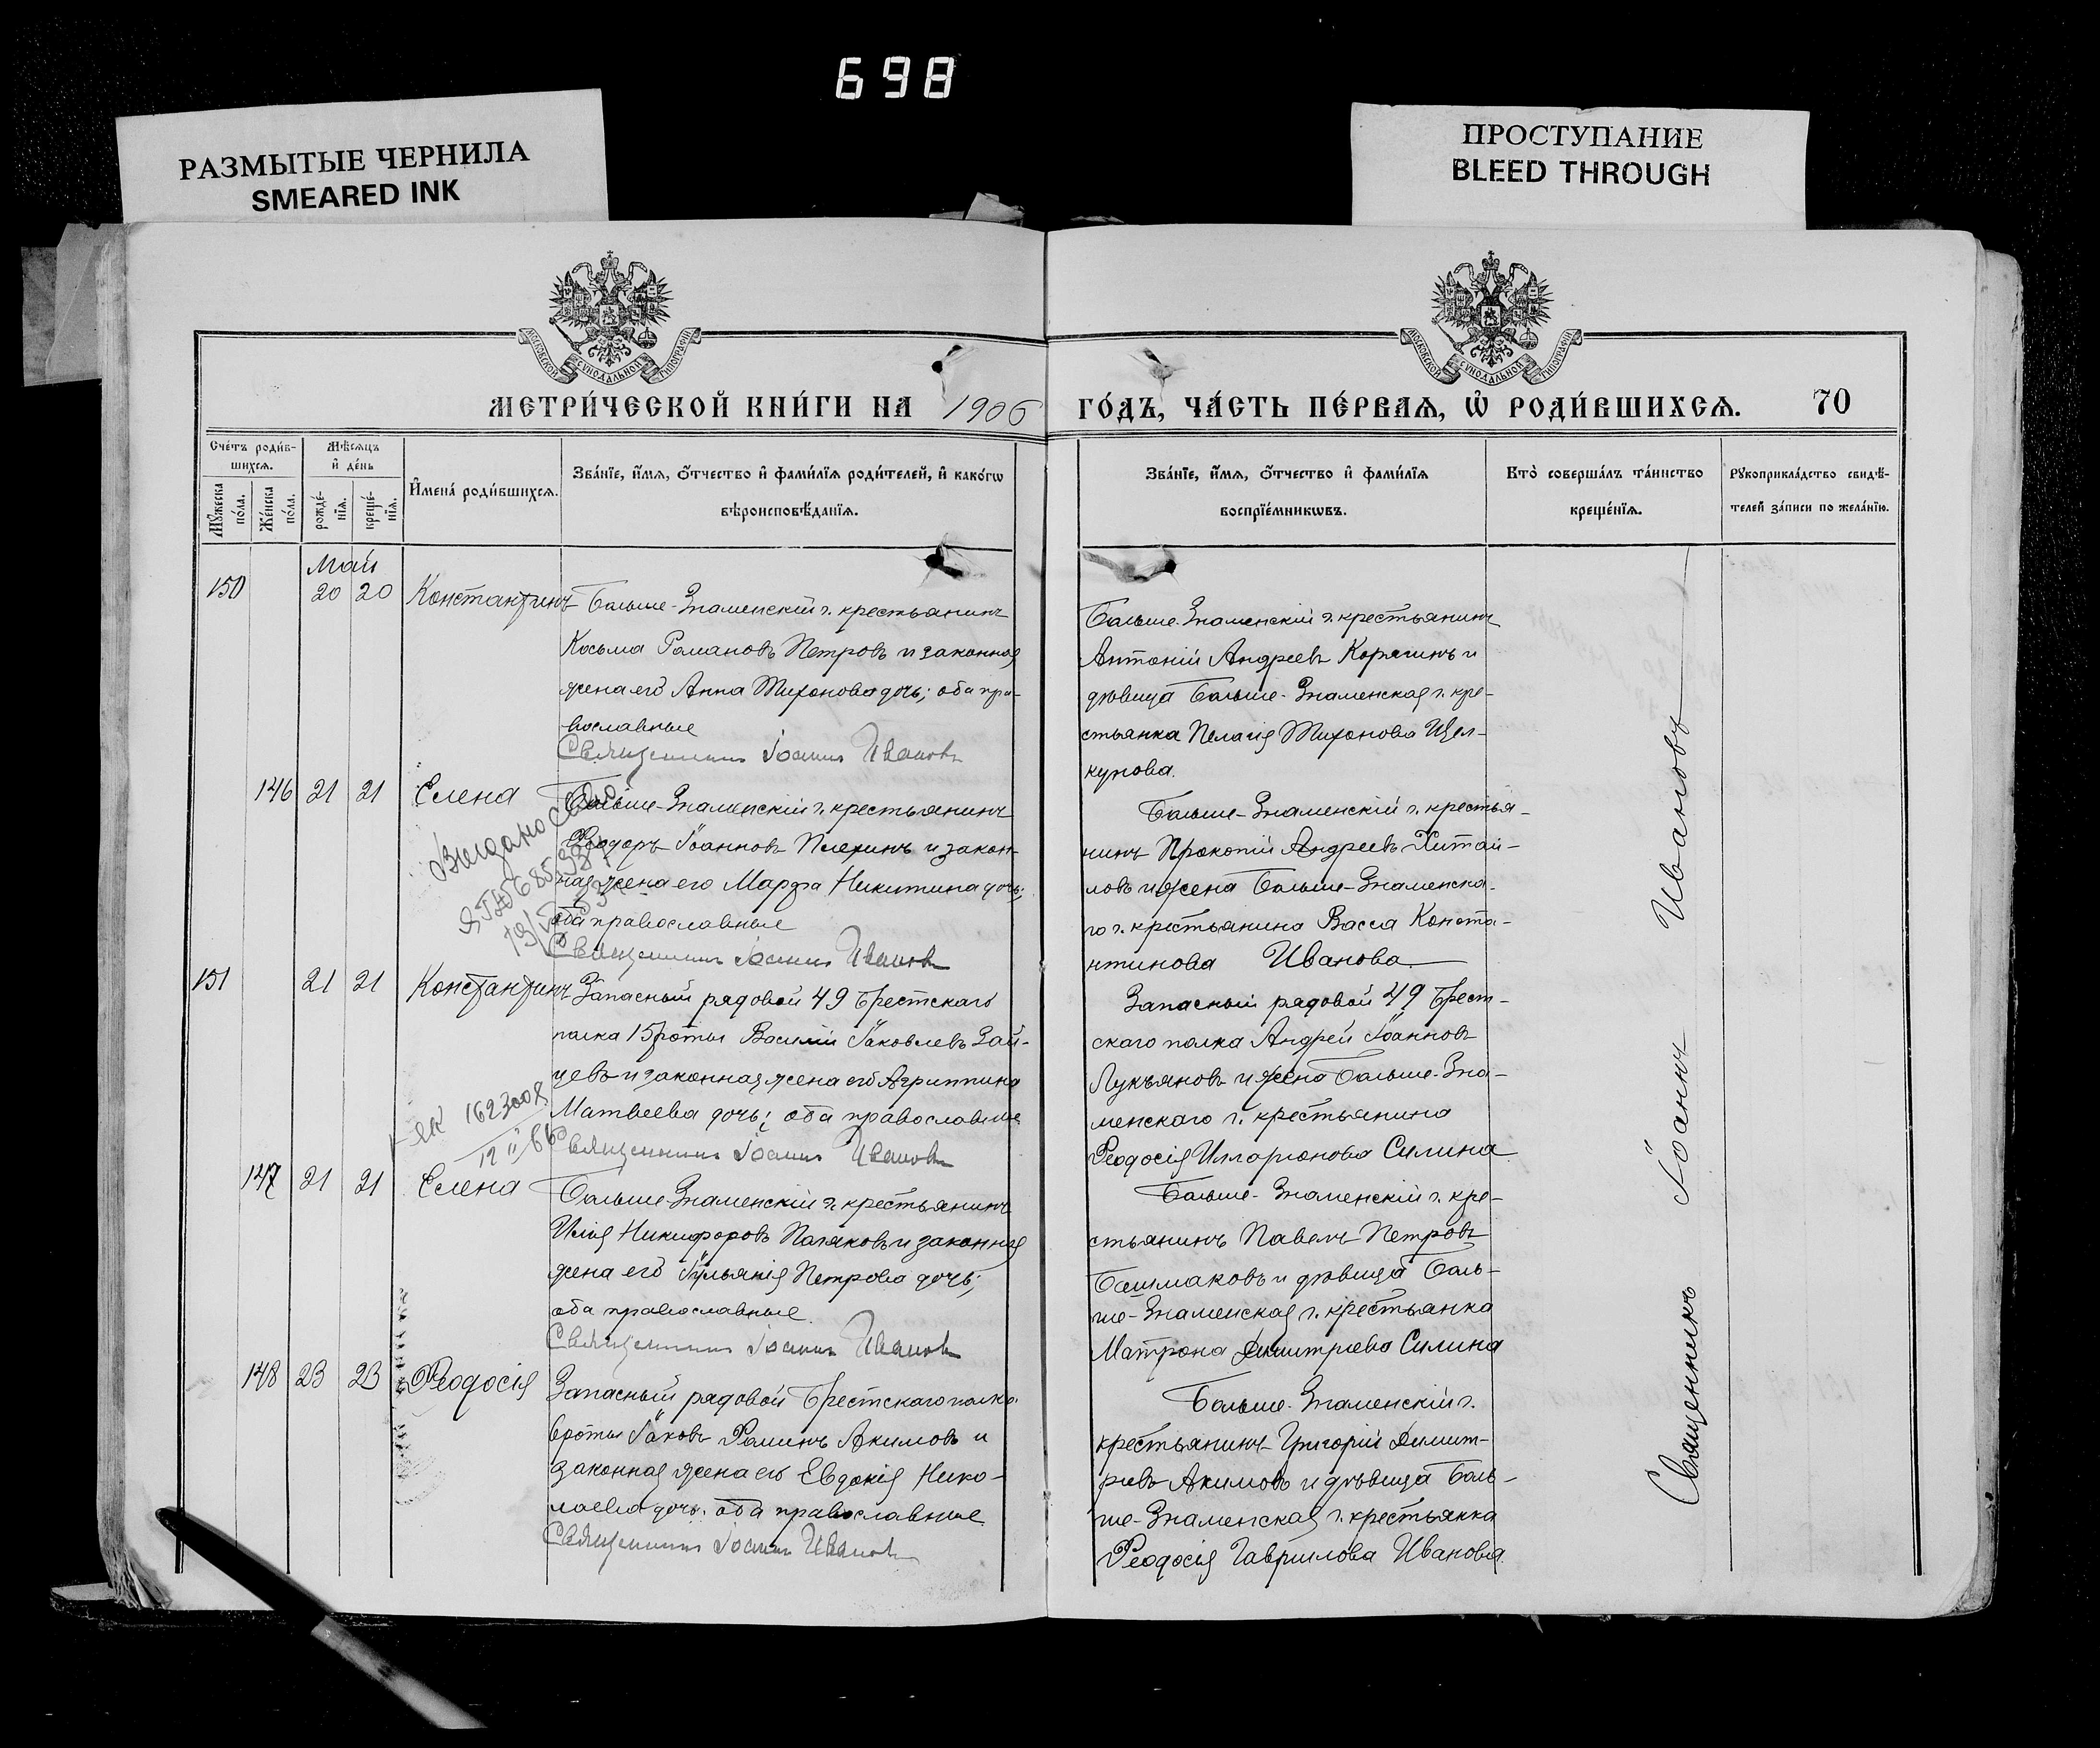 698
РАЗМЫТЫЕ ЧЕРНИЛА
SMEARED INK
ПРОСТУПАНИЕ
BLEED THROUGH
МОСКОВСКОЙ СУНОДАЛЬНОЙ ТИПОГРАФІИ
МОСКОВСКОЙ СУНОДАЛЬНОЙ ТИПОГРАФІИ
МЕТРИ́ЧЕСКОЙ КНИ́ГИ НА 1906 ГО́ДЪ, ЧА́СТЬ ПЕ́РВАѦ, Ѡ҆ РОДИ́ВШИХСѦ. 70
Сче́тъ роди́в-
шихсѧ.
Мꙋ́жеска по́ла.
Же́нска по́ла.
Мѣ́сѧцъ
и҆ де́нь
рожде́-
нїѧ.
креще́-
нїѧ.
И҆мена̀ роди́вшихсѧ.
Зва́нїе, и҆́мѧ, ѻ҆́тчество и҆ фами́лїѧ роди́телей, и҆ како́гѡ
вѣроисповѣ́данїѧ.
Зва́нїе, и҆́мѧ, ѻ҆́тчество и҆ фами́лїѧ
воспрїе́мникѡвъ.
Кто̀ соверша́лъ та́инство
креще́нїѧ.
Рꙋкоприкла́дство свидѣ́-
телей за́писи по жела́нїю.
Май
150 20 20 Константинъ
Больше-Знаменскій г. крестьянинъ
Косьма Романовъ Петровъ и законная
жена его Анна Тихонова дочь; оба пра-
вославные
Священникъ Іоаннъ Ивановъ
Больше-Знаменскій г. крестьянинъ
Антоній Андреевъ Корягинъ и
дѣвица Больше-Знаменская г. кре-
стьянка Пелагія Тихонова Щел-
кунова.
146 21 21 Елена
Выдано св-во
13/V
Больше-Знаменскій г. крестьянинъ
Ѳеодоръ Іоанновъ Плехинъ и закон-
ная жена его Марфа Никитина дочь;
оба православные
Священникъ Іоаннъ Ивановъ
Больше-Знаменскій г. крестья-
нинъ Прокопій Андреевъ Хитай-
ловъ и жена Больше-Знаменска-
го г. крестьянина Васса Конста-
нтинова Иванова
151 21 21 Константинъ
ЯК 1623009
12 II 66
Запасный рядовой 49 Брестскаго
полка 15 роты Василій Іаковлевъ Зай-
цевъ и законная жена его Агриппина
Матвеева дочь; оба православные
Священникъ Іоаннъ Ивановъ
Запасный рядовой 49 Брест-
скаго полка Андрей Іоанновъ
Лукьяновъ и жена Больше-Зна-
менскаго г. крестьянина
Ѳеодосія Иларіонова Силина
147 21 21 Елена
Больше-Знаменскій г. крестьянинъ
Илія Никифоровъ Поляковъ и законная
жена его Іульянія Петрова дочь;
оба православные.
Священникъ Іоаннъ Ивановъ
Больше-Знаменскій г. кре-
стьянинъ Павелъ Петровъ
Башмаковъ и дѣвица Боль-
ше-Знаменская г. крестьянка
Матрона Димитріева Силина
148 23 23 Ѳеодосія
Запасный рядовой Брестскаго полка
роты Іаковъ Акимовъ и
законная жена его Евдокія Нико-
лаева дочь. оба православные
Священникъ Іоаннъ Ивановъ
Больше-Знаменскій г.
крестьянинъ Григорій Димит-
ріевъ Акимовъ и дѣвица Боль-
ше-Знаменская г. крестьянка
Ѳеодосія Гаврилова Иванова
Священникъ Іоаннъ Ивановъ